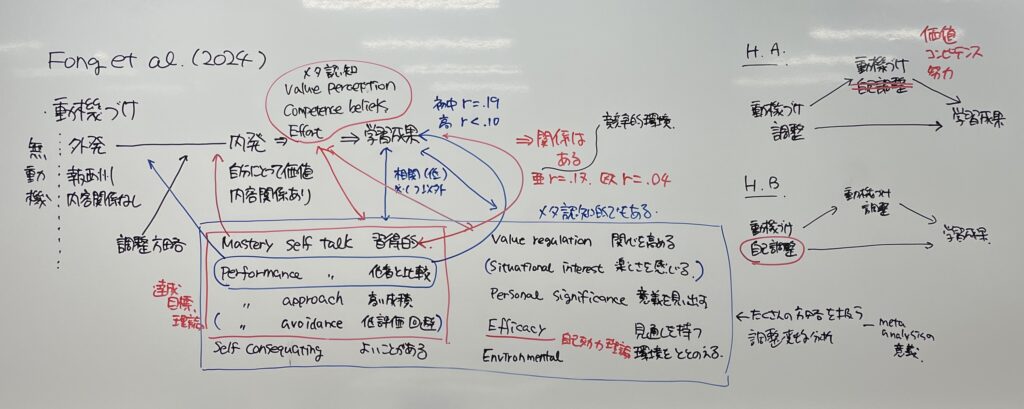 Fong et al. (2024)
・動機づけ
無動機
外発
内発
⇒
⇒ 学習成果
メタ認知
Value perception
Competence beliefs
Effort
初中 r=.19
高 r<.10
内容関係なし
自分にとって価値
内容関係あり
相関(低)
調整方略
⇒ 関係は
ある
効率的環境
亜 r=.17. 欧 r=.04
メタ認知的でもある.
達成
目標
理論
Mastery self talk 習得的
Performance 〃 他者と比較
〃 approach 高い成積
( 〃 avoidance 低評価回避)
Self consequating よいことがある
Value regulation 関心を高める
(Situational interest 楽しさを感じる.)
Personal Significance 意義を見い出す
Efficacy 自己効力理論 見通しを持つ
Environmental 環境をととのえる.
H.A.
価値
コンピテンス
努力
動機づけ
自己調整
動機づけ
調整
学習成果
H.B
動機づけ
調整
動機づけ
自己調整
学習成果
←たくさんの方略を扱う
調整変数分析
meta
analysisの
意義.